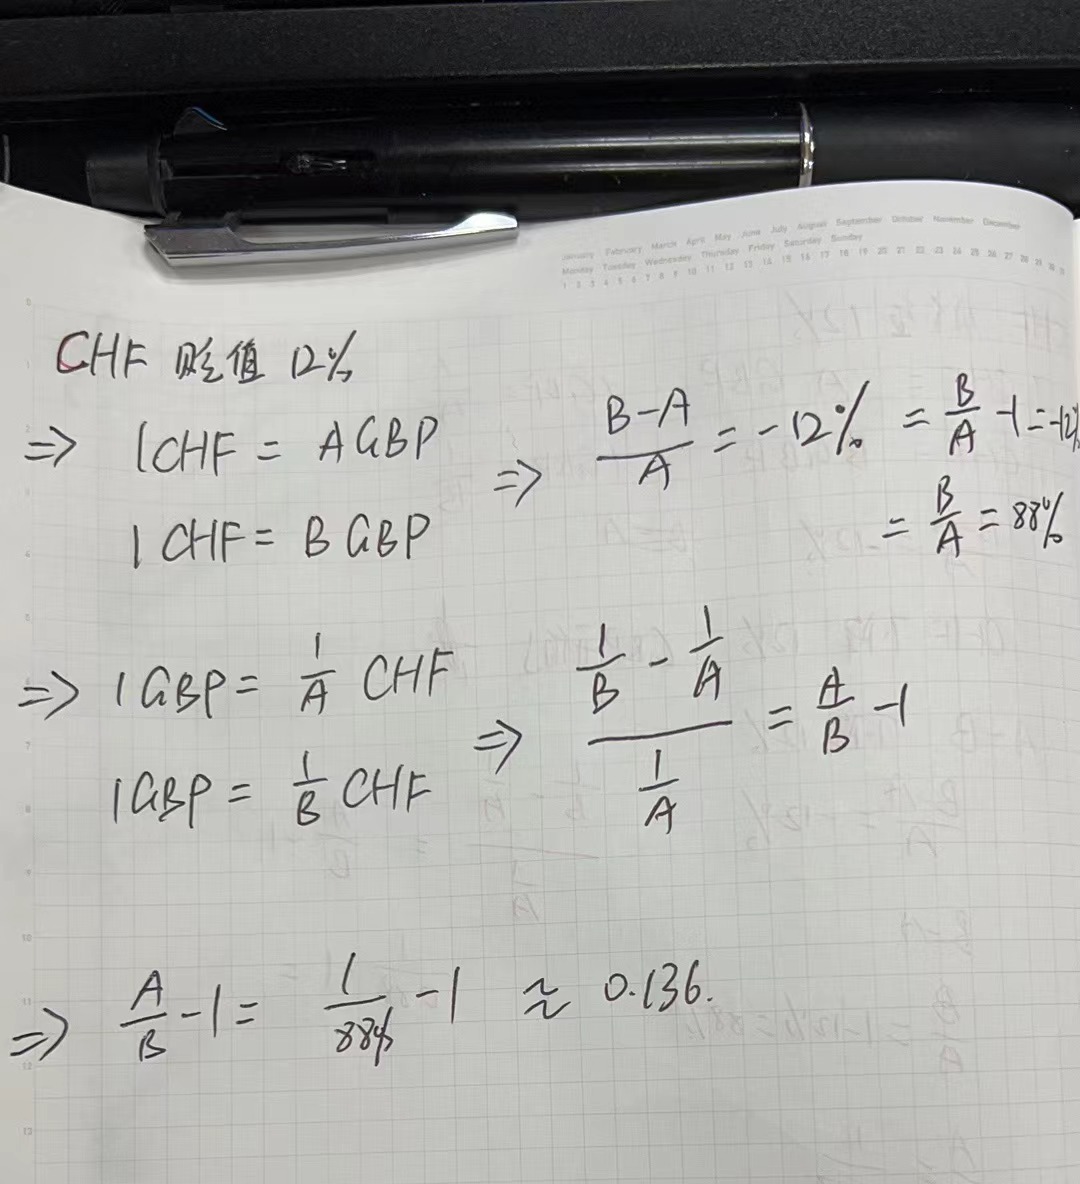 January February March April May June July August September October November December
Monday Tuesday Wednesday Thursday Friday Saturday Sunday
1 2 3 4 5 6 7 8 9 10 11 12 13 14 15 16 17 18 19 20 21 22 23 24 25 26 27 28 29 30
CHF 贬值 12%
⇒ 1CHF = A GBP ⇒ (B-A)/A = -12% = B/A -1 = -12%
1 CHF = B GBP = B/A = 88%
⇒ 1 GBP = 1/A CHF ⇒ (1/B - 1/A)/(1/A) = A/B -1
1GBP = 1/B CHF
⇒ A/B -1 = 1/88% -1 ≈ 0.136.